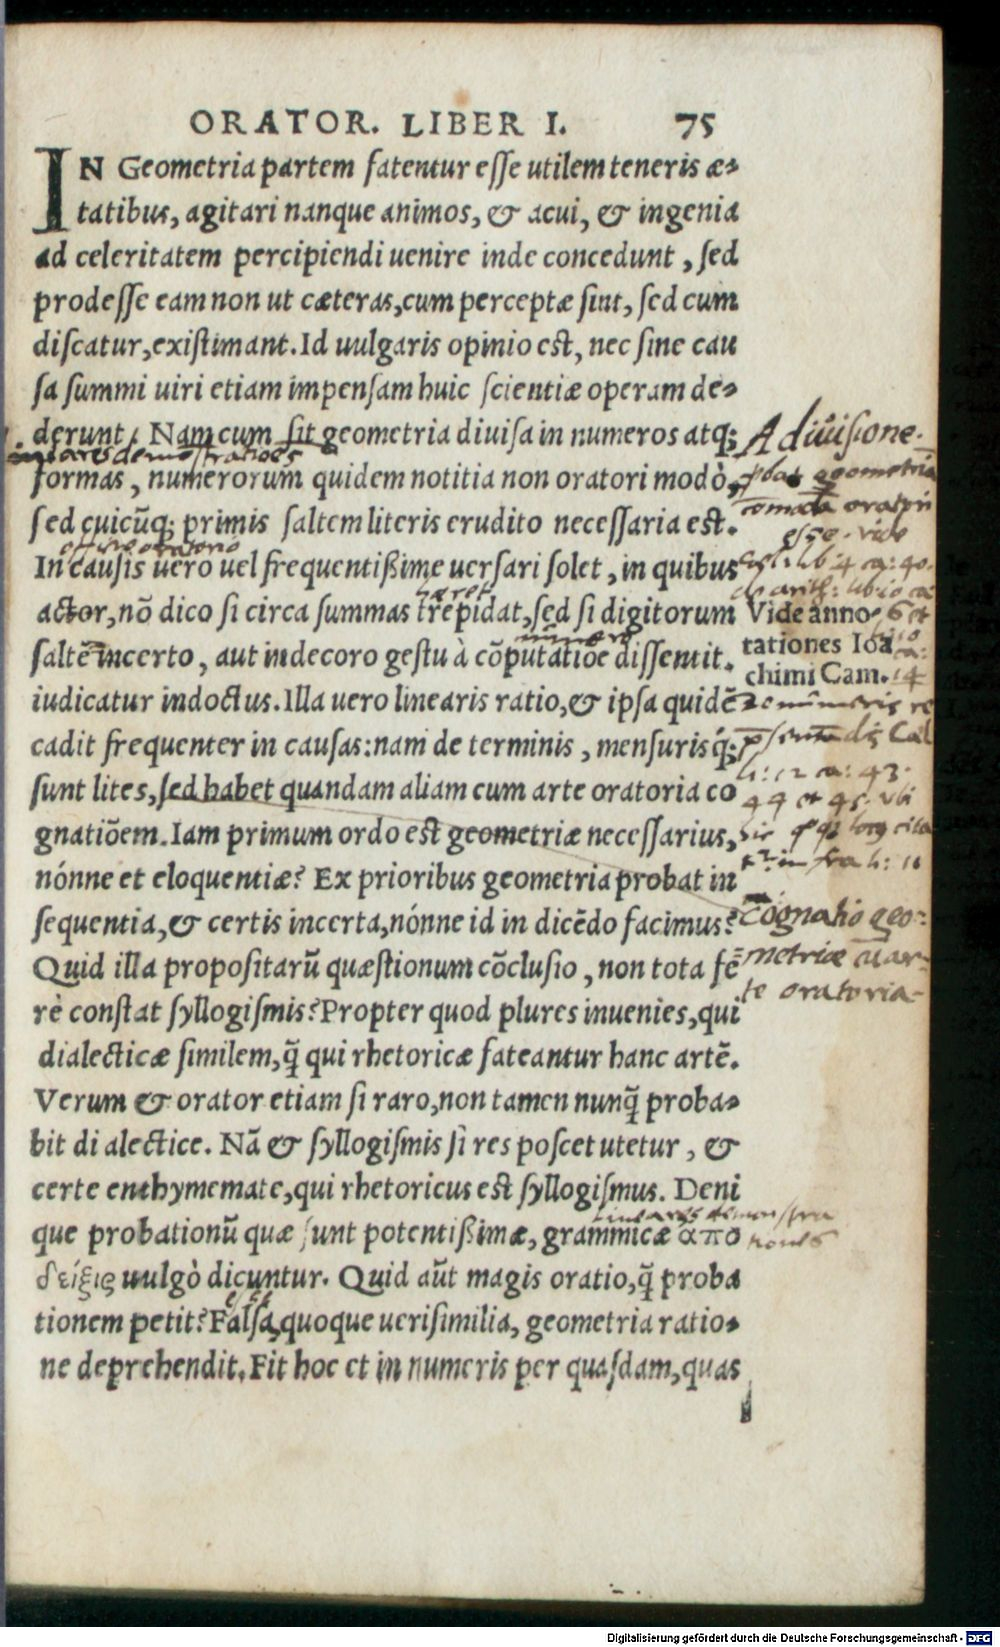 ORATOR. LIBER I. 75
IN Geometria partem fatentur esse utilem teneris æ-
tatibus, agitari nanque animos, & acui, & ingenia
ad celeritatem percipiendi uenire inde concedunt, sed
prodesse eam non ut cæteras, cum perceptæ sint, sed cum
discatur, existimant. Id uulgaris opinio est, nec sine cau
sa summi uiri etiam impensam huic scientiæ operam de-
derunt. Nam cum sit geometria diuisa in numeros atq;
formas, numerorum quidem notitia non oratori modò,
sed cuicũq; primis saltem literis erudito necessaria est.
In causis uero uel frequentißime uersari solet, in quibus
actor, nõ dico si circa summas trepidat, sed si digitorum
saltẽ incerto, aut indecoro gestu à cõputatiõe dissentit.
iudicatur indoctus. Illa uero linearis ratio, & ipsa quidẽ
cadit frequenter in causas: nam de terminis, mensurisq́;
sunt lites, sed habet quandam aliam cum arte oratoria co
gnatiõem. Iam primum ordo est geometriæ necessarius,
nónne et eloquentiæ? Ex prioribus geometria probat in
sequentia, & certis incerta, nónne id in dicẽdo facimus?
Quid illa propositarũ quæstionum cõclusio, non tota fe-
rè constat syllogismis? Propter quod plures inuenies, qui
dialecticæ similem, q̃ qui rhetoricæ fateantur hanc artẽ.
Verum & orator etiam si raro, non tamen nunq̃ proba-
bit dialectice. Nã & syllogismis si res poscet utetur, &
certe enthymemate, qui rhetoricus est syllogismus. Deni
que probationũ quæ sunt potentißimæ, grammicæ ἀπο
δείξις uulgò dicuntur. Quid aũt magis oratio, q̃ proba
tionem petit? Falsa quoque uerisimilia, geometria ratio-
ne deprehendit. Fit hoc et in numeris per quasdam, quas
A diuisione
pbat geometriã
oratori
esse. vide
Vide anno-
tationes Ioa
chimi Cam.
li: 12 ca: 43.
44 et 45. vbi
infra li: 11
Cognatio geo-
metriæ cũ ar-
te oratoria
lineares demonstrationes
officio oratorio
hæret
numero
lineares demonstra
tiones
Digitalisierung gefördert durch die Deutsche Forschungsgemeinschaft - DFG